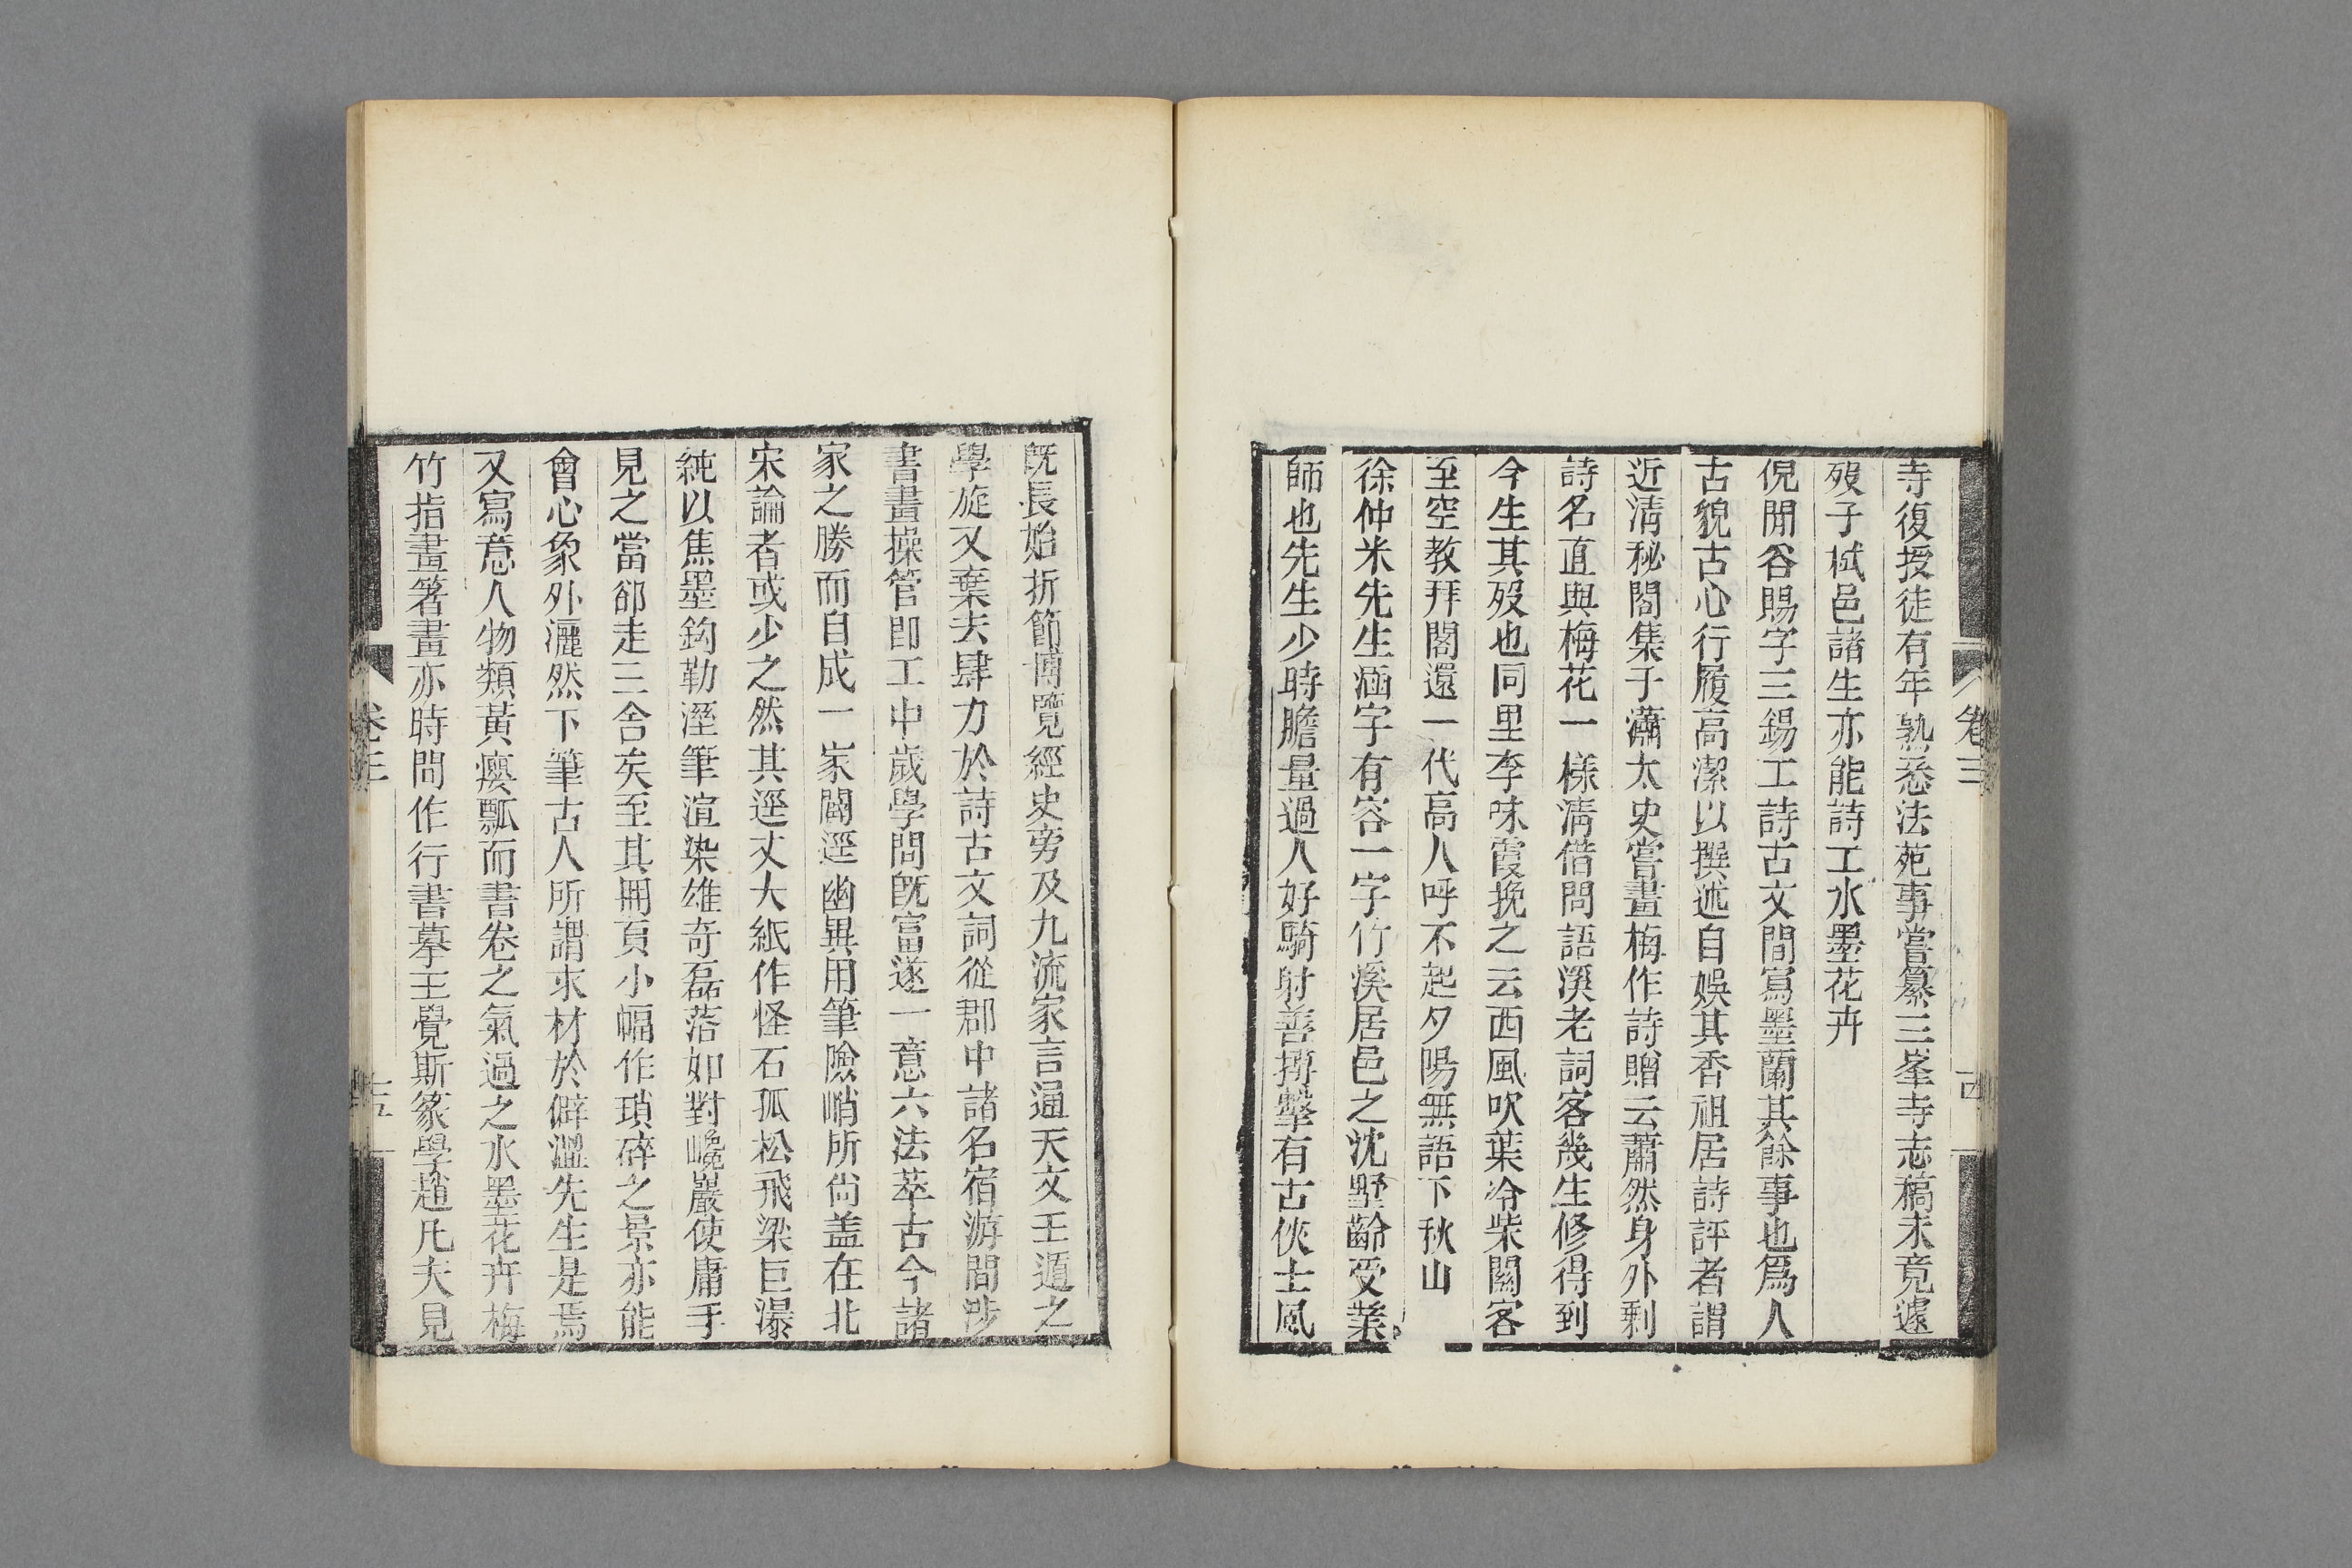 寺復授徒有年熟悉法苑事嘗纂三峯寺志稿未竟遽
歿子栻邑諸生亦能詩工水墨花卉
倪閒谷賜字三錫工詩古文間寫墨蘭其餘事也爲人
古貌古心行履高潔以撰述自娛其香祖居詩評者謂
近淸秘閣集子瀟太史嘗畫梅作詩贈云蕭然身外剩
詩名直與梅花一樣淸借問語溪老詞客幾生修得到
今生其歿也同里李味霞挽之云西風吹葉冷柴關客
至空教拜閣還一代高人呼不起夕陽無語下秋山
徐仲米先生涵字有容一字竹溪居邑之沈墅齡受業
師也先生少時膽量過人好騎射善搏擊有古俠士風
卷三
古
旣長始折節博覽經史旁及九流家言通天文壬遁之
學旋又棄去肆力於詩古文詞從郡中諸名宿游間涉
書畫操管卽工中歲學問旣富遂一意六法萃古今諸
家之勝而自成一家閫逕幽異用筆險峭所尙盖在北
宋論者或少之然其逕丈大紙作怪石孤松飛梁巨瀑
純以焦墨鈎勒溼筆渲染雄奇磊落如對巉巖使庸手
見之當郤走三舍矣至其冊頁小幅作瑣碎之景亦能
會心象外灑然下筆古人所謂求材於僻澀先生是焉
又寫意人物類黃癭瓢而書卷之氣過之水墨花卉梅
竹指畫箸畫亦時問作行書摹王覺斯篆學趙凡夫見
卷三
十五